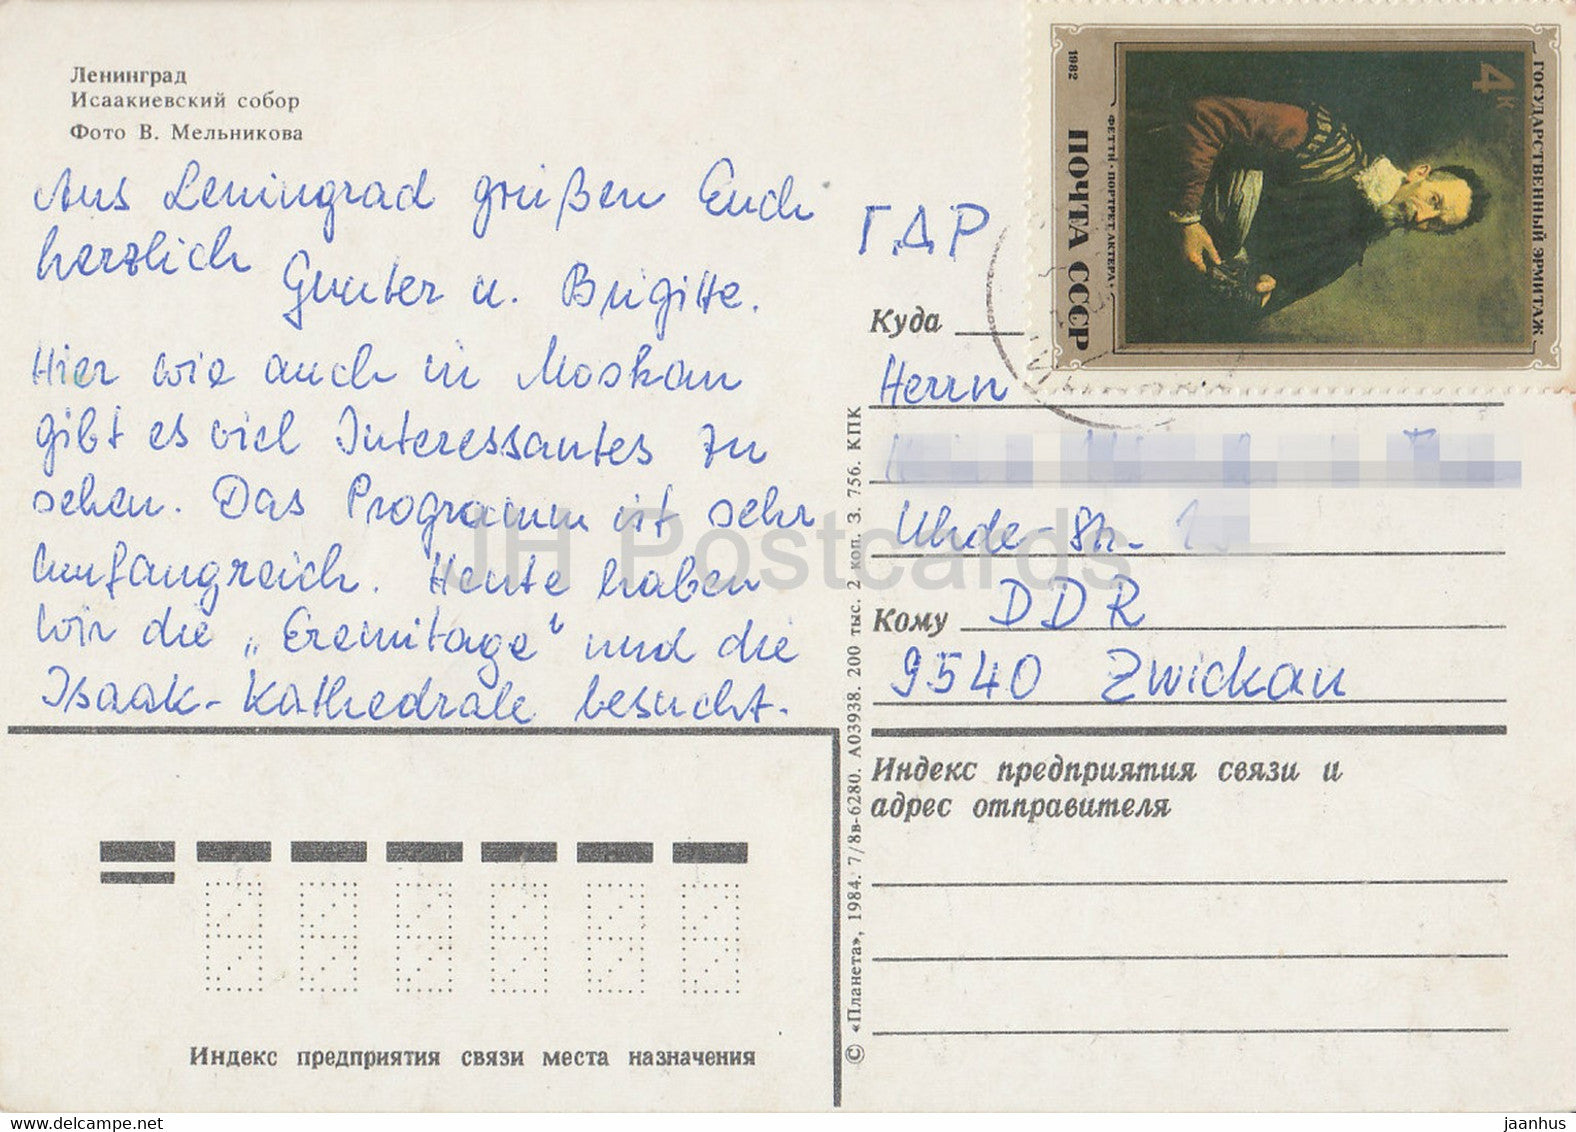 Ленинград
Исаакиевский собор
Фото В. Мельникова
Aus Leningrad grüßen Euch
herzlich
Gunter u. Brigitte.
Hier wie auch in Moskau
gibt es viel Interessantes zu
sehen. Das Programm ist sehr
umfangreich. Heute haben
wir die „Eremitage“ und die
Isaak-Kathedrale besucht.
Индекс предприятия связи места назначения
© «Планета», 1984. 7/8в-6280. А03938. 200 тыс. 2 коп. З. 756. КПК
ГОСУДАРСТВЕННЫЙ ЭРМИТАЖ
4к
ФЕТТИ·ПОРТРЕТ АКТЕРА·
ПОЧТА СССР
1982
Г.Д.Р
Куда
Herrn
Uhde-Str.
DDR
Кому
9540 Zwickau
Индекс предприятия связи и
адрес отправителя
JH Postcards
www.delcampe.net
jaanhus